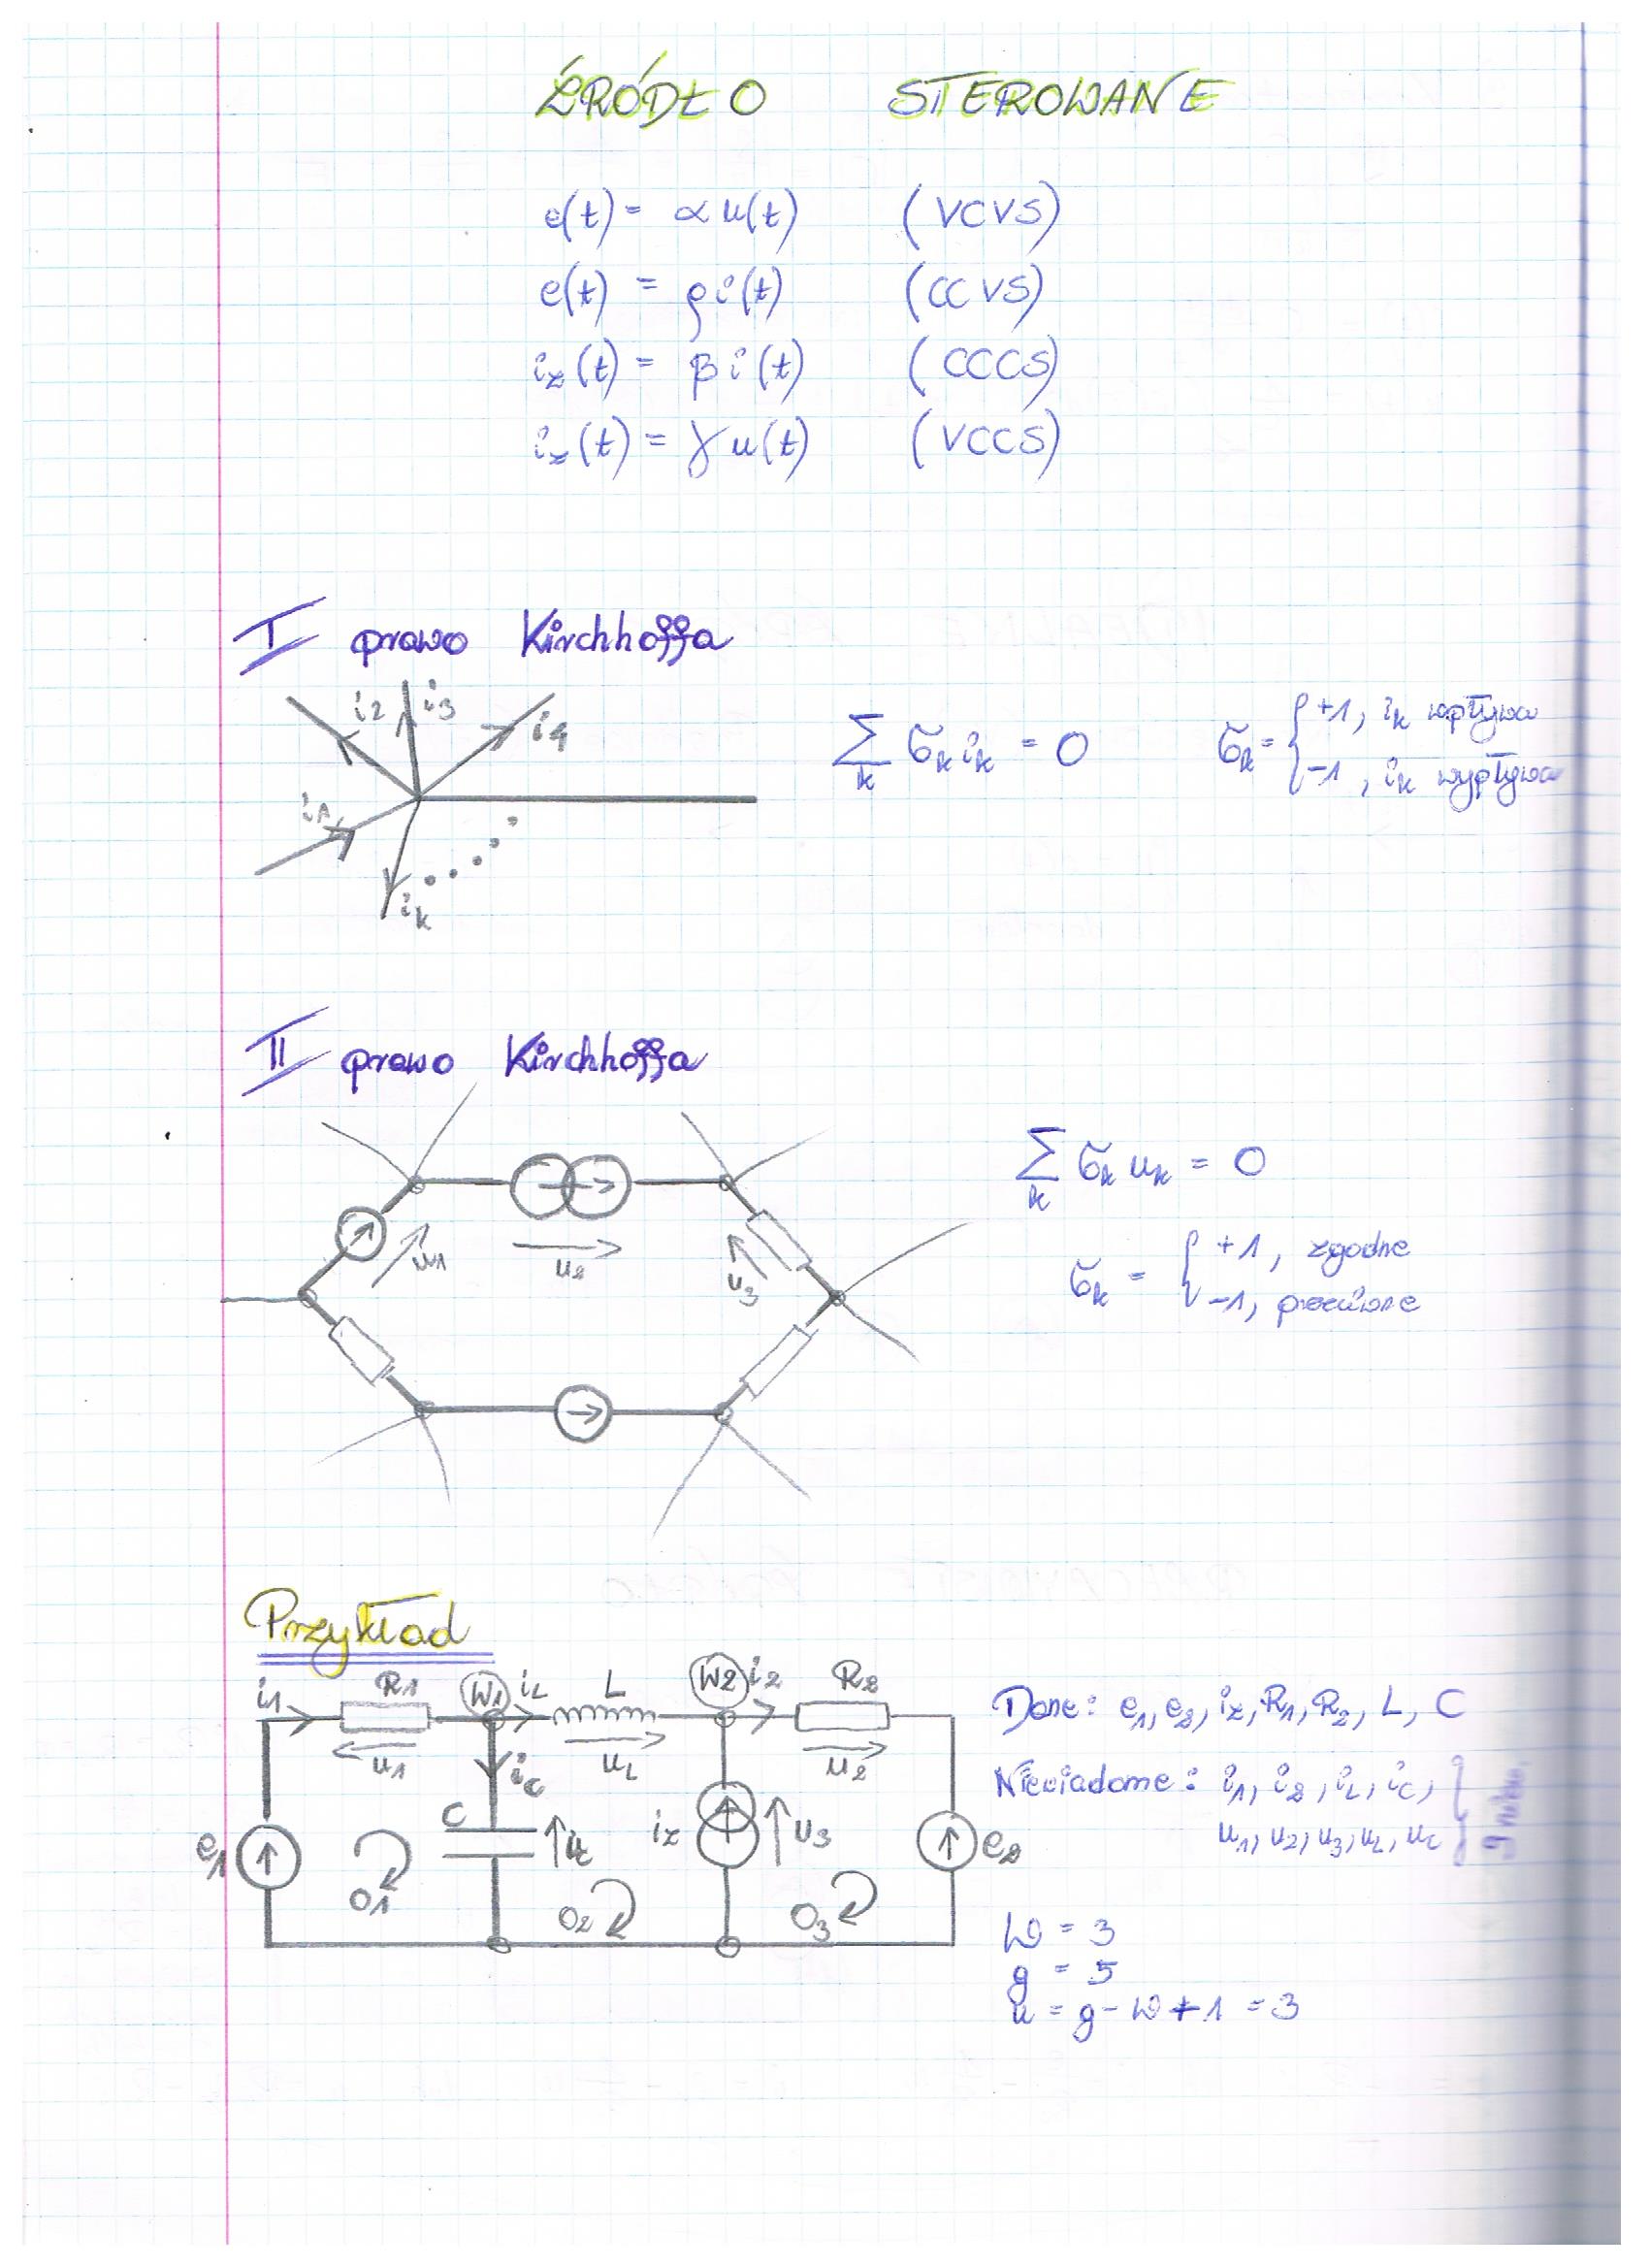 ŹRÓDŁO STEROWANE
e(t) = α u(t) (VCVS)
e(t) = ρ i(t) (CCVS)
i_z(t) = β i(t) (CCCS)
i_z(t) = γ u(t) (VCCS)
I prawo Kirchhoffa
i2 i3 i4
i1
ik
∑_k σ_k i_k = 0
σ_k = { +1, i_k wpływa
-1, i_k wypływa
II prawo Kirchhoffa
u1 u2 u3
∑_k σ_k u_k = 0
σ_k = { +1, zgodne
-1, przeciwne
Przykład
i1 R1 W1 iL L W2 i2 R2
u1 uL u2
iC
C uC iz u3
e1 e2
O1 O2 O3
Dane: e1, e2, iz, R1, R2, L, C
Niewiadome: i1, i2, iL, iC,
u1, u2, u3, uL, uC
W = 3
g = 5
n = g - W + 1 = 3